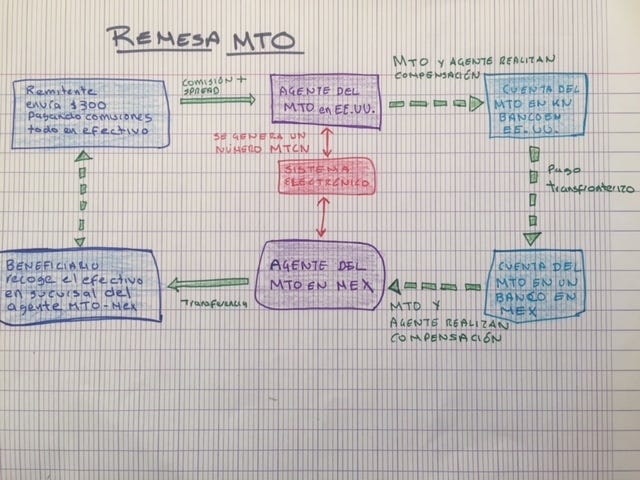 REMESA MTO
Remitente
envía $300
Pagando comisiones
todo en efectivo
COMISIÓN +
SPREAD
AGENTE DEL
MTO en EE.UU.
MTO Y AGENTE REALIZAN
COMPENSACIÓN
CUENTA DEL
MTO EN UN
BANCO EN
EE.UU.
SE GENERA UN
NÚMERO MTCN
SISTEMA
ELECTRÓNICO
Pago
Transfronterizo
BENEFICIARIO
recoge el efectivo
en sucursal del
agente MTO-Mex
Transferencia
AGENTE DEL
MTO EN MEX
MTO Y
AGENTE REALIZAN
COMPENSACIÓN
CUENTA DEL
MTO EN UN
BANCO EN
MEX